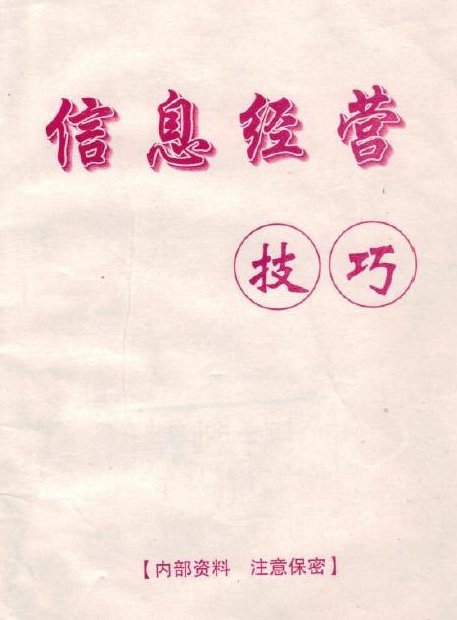 信息经营
技巧
【内部资料　注意保密】